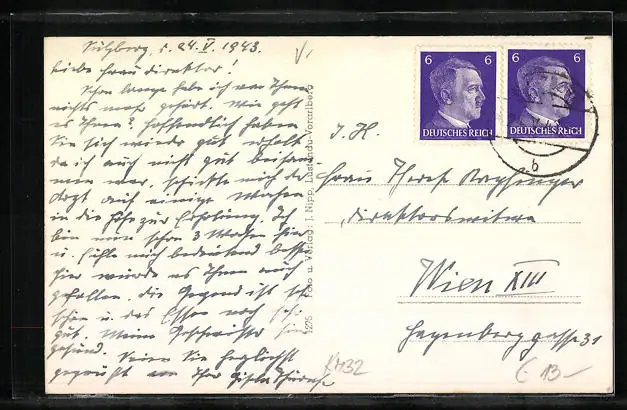 Sulzberg, d. 24. V. 1943.
Liebe Frau Direktor!
Schon lange habe ich von Ihnen
nichts mehr gehört. Wie geht
es Ihnen? Hoffentlich haben
Sie sich wieder gut erholt
da ich auch nicht gut beisammen
war, schickte mich der
Arzt auf einige Wochen
in die Höhe zur Erholung. Ich
bin nun schon 3 Wochen hier
u. fühle mich bedeutend besser
hier würde es Ihnen auch
gefallen. Die Gegend ist sehr
schön u. das Essen noch sehr
gut. Meine Geschwister sind
gesund. Seien Sie herzlichst
gegrüßt von Ihrer Gisela
1275 Foto u. Verlag: J. Nipp, Lustenau-Vorarlberg
6 6
DEUTSCHES REICH
6 6
DEUTSCHES REICH
b
I. H.
Frau Therese
Direktorswitwe
Wien XIII
Hagenberggasse 31
K432
€ 13-